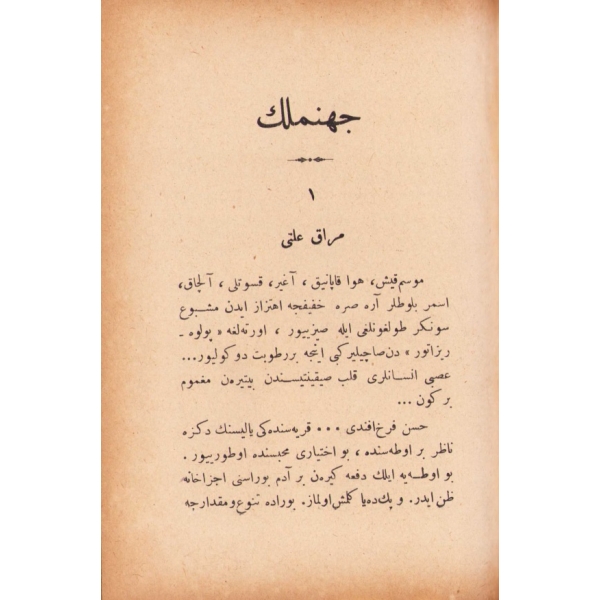 جهنملك
١
مراق علتى
موسم قيش، هوا قاپانيق، آغير، قسوتلى، آلچاق،
اسمر بلوطلر آره صره خفيفجه اهتزاز ايدن مشبوع
سونكر طولغونلغى ايله صيزييور، اورته‌لغه « پولوه ـ
ريزاتور » دن صاچيلير كبى اينجه بر رطوبت دوكوليور...
عصبى انسانلرى قلب صيقينتيسندن بيتيره‌ن مغموم
بر كون ...
حسن فرخ افندى ... قريه‌سنده‌كى ياليسنك دكزه
ناظر بر اوطه‌سنده، بو اختيارى محبسنده اوطورييور.
بو اوطه‌يه ايلك دفعه كيره‌ن بر آدم بوراسنى اجزاخانه
ظن ايدر. و پك ده ياكلمش اولماز. بوراده تنوع و مقدارجه